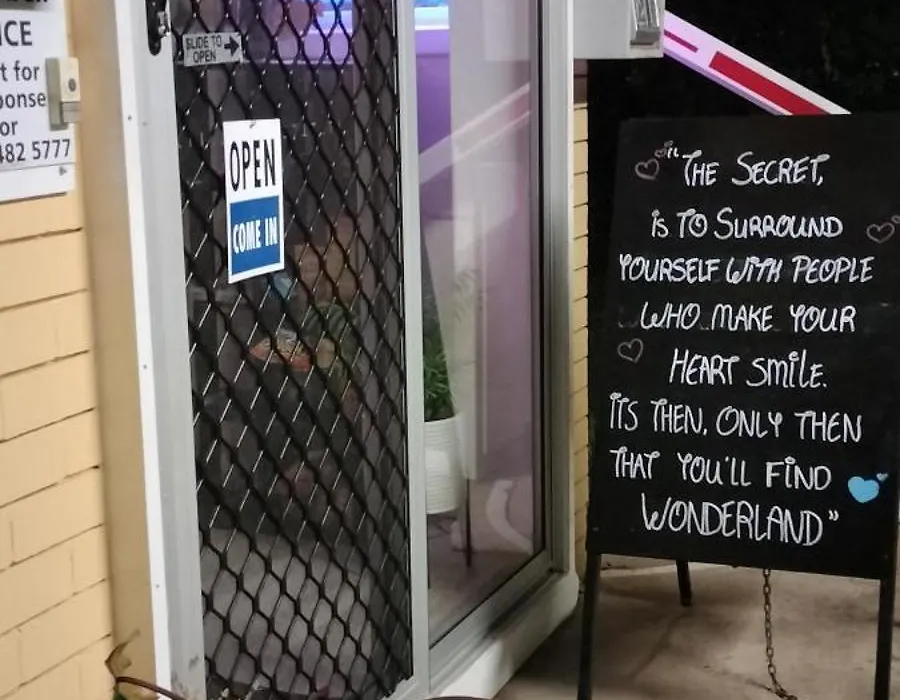 ICE
t for
ponse
or
482 5777
SLIDE TO
OPEN
OPEN
COME IN
"THE SECRET,
IS TO SURROUND
YOURSELF WITH PEOPLE
WHO MAKE YOUR
HEART SMILE.
ITS THEN, ONLY THEN
THAT YOU'LL FIND
WONDERLAND"